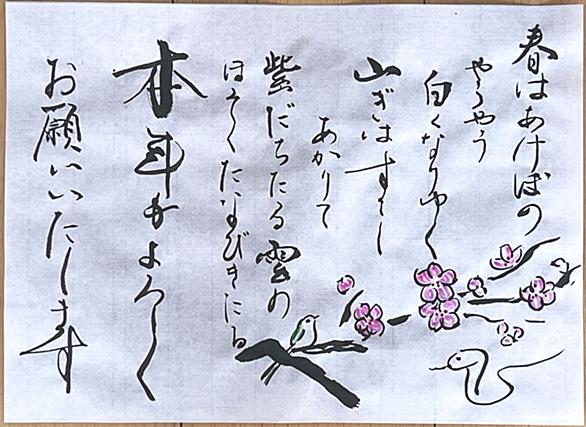 春はあけぼの
やうやう
白くなりゆく
山ぎはすこし
あかりて
紫だちたる雲の
ほそくたなびきたる
本年もよろしく
お願いいたします